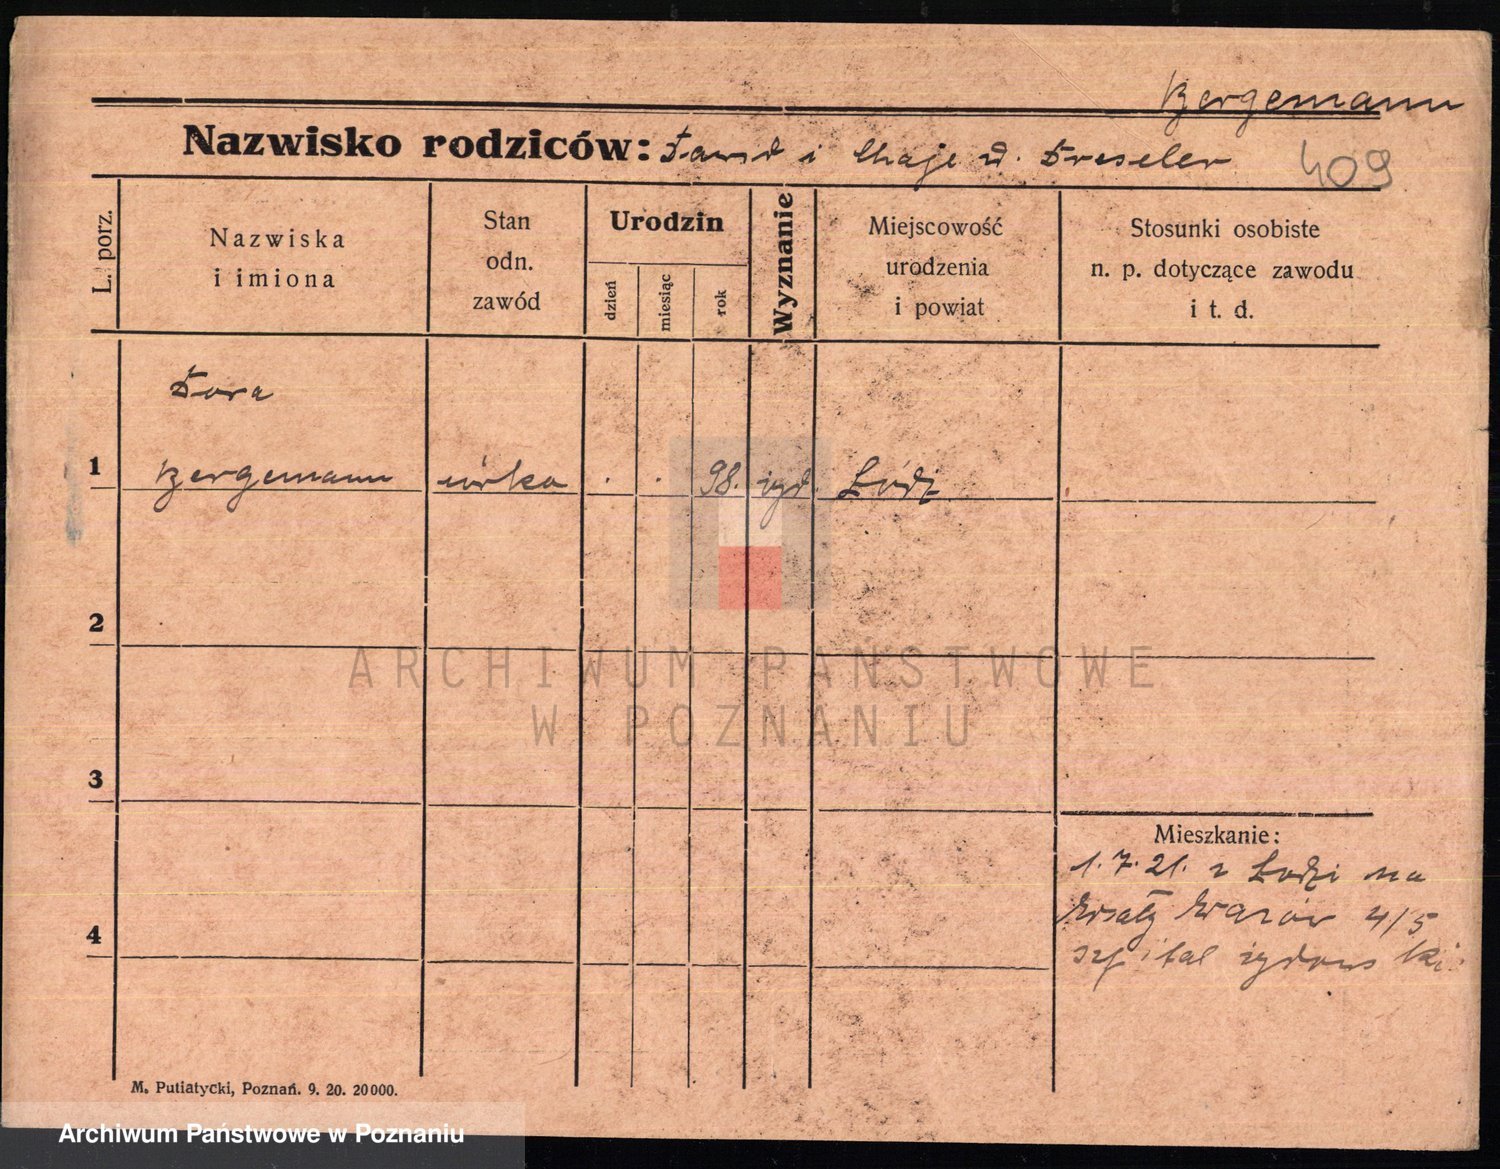 Bergemann
Nazwisko rodziców: Dawid i Chaje d. Dreseler
409
L. porz.
Nazwiska
i imiona
Stan
odn.
zawód
Urodzin
dzień
miesiąc
rok
Wyznanie
Miejscowość
urodzenia
i powiat
Stosunki osobiste
n. p. dotyczące zawodu
i t. d.
Dora
1 Bergemann córka . . 98. żyd. Łódź
2
3
4
Mieszkanie:
1.7.21. z Łodzi na
4/5
szpital żydowski
M. Putiatycki, Poznań. 9. 20. 20000.
ARCHIWUM PAŃSTWOWE
W POZNANIU
Archiwum Państwowe w Poznaniu